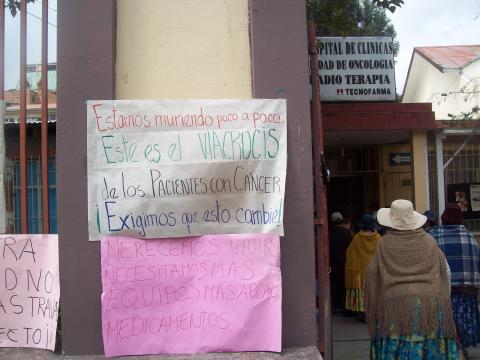 Estamos muriendo poco a poco
Este es el VIACRUCIS
de los PACIENTES con CÁNCER
¡Exigimos que esto cambie!
MERECEMOS VIVIR
NECESITAMOS MAS
EQUIPOS MAS APOYO
MEDICAMENTOS
RA
D NO
AS TRAV
ECTO¡¡
SPITAL DE CLINICAS
DAD DE ONCOLOGIA
ADIO TERAPIA
TECNOFARMA